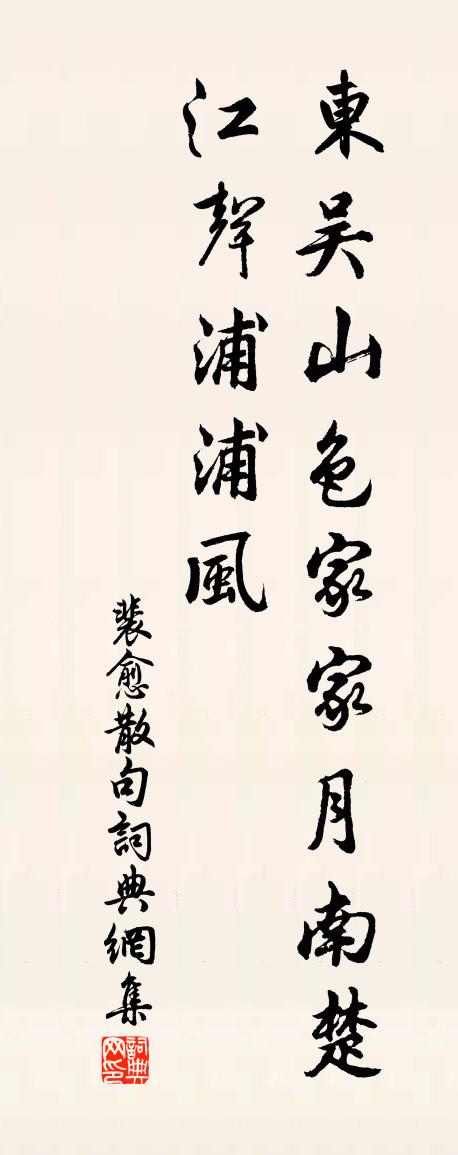 東吴山色家家月南楚
江聲浦浦風
裴愈散句詞典網集
詞典网印